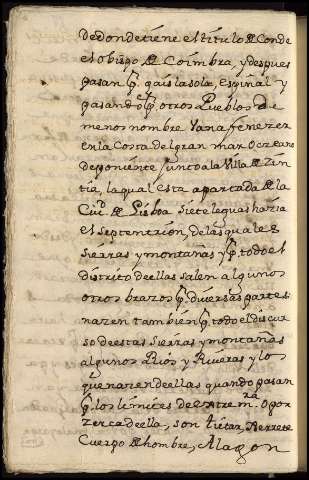 de donde tiene el título de Conde
el obispo de Coimbra, y despues
pasan pr. la sola, Espiñal y
pasando pr. otros Pueblos de
menos nombre van a fenezer
en la Costa del gran mar Occeano
de poniente junto a la Villa de Zin-
tia, la qual está apartada de la
Ciud. de Lisboa siete leguas hazia
el septentrión, de las quales
sierras y montañas y pr. todo el
distrito de ellas salen algunos
otros brazos pr. diversas partes
nazen tambien pr. todo el discur-
so de estas sierras y montañas
algunos Rios y Riveras y los
que nazen de ellas quando pasan
pr. los límites de Extrem.ra O por
zerca de ella, son tietar, Xerrete
Cuerpo de hombre, Alagon